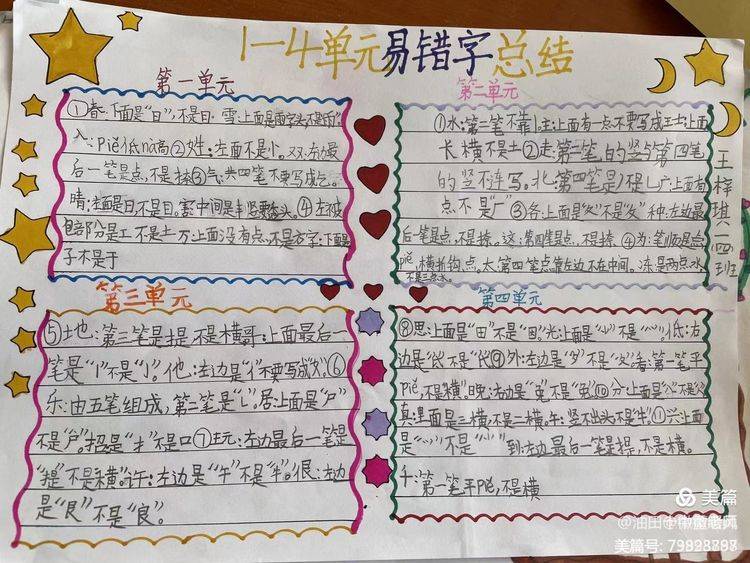 1—4单元易错字总结
第一单元
①春:下面是"日",不是曰.雪:上面是雨字头不是雨.
入:pie低na高②姓:左面不是小.双:左边最
后一笔是点,不是捺③气:共四笔不要写成乞.
晴:左面是日,不是目.寒:中间是井竖要出头.④左:被
包部分是工不是土.万:上面没有点,不是方.字:下面是
子不是于
第二单元
①水:第二笔不靠亅.主:上面有一点不要写成王.上面
长横不是土②走:第三笔的竖与第四笔
的竖不连写.北:第四笔是丿不是乚.广:上面有
点不是"厂"③各:上面是"夂"不是"又".种:左边最
后一笔是点,不是捺.这:第四笔是点,不是捺.④为:笔顺是点
pie,横折钩,点.太:第四笔点靠左边不在中间.冻:是两点水
不是三点水.
王梓琪一(四)班
第三单元
⑤土地:第三笔是提,不是横.哥:上面最后一
笔是"丨"不是"亅".他:左边是"亻"不要写成"彳"⑥
乐:由五笔组成,第二笔是"𠄌".居:上面是"尸"
不是"户".招:是"扌"不是口⑦玩:左边最后一笔是
"提"不是横.许:右边是"午"不是"牛".很:右边
是"艮"不是"良".
第四单元
⑧思:上面是"田"不是"因".光:上面是"⺌"不是"⺍".低:右
边是"氐"不是"氏"⑨外:左边是"夕"不是"夂".看:第一笔平
pie,不是横.晚:右边是"免"不是"兔"⑩分:上面是"八"不是"人"
真:里面是三横,不是二横.午:竖不出头不是牛.①兴:上面
是"⺍"不是"⺌"到:左边最后一笔是提,不是横.
千:第一笔平pie,不是横
美篇
美篇号: